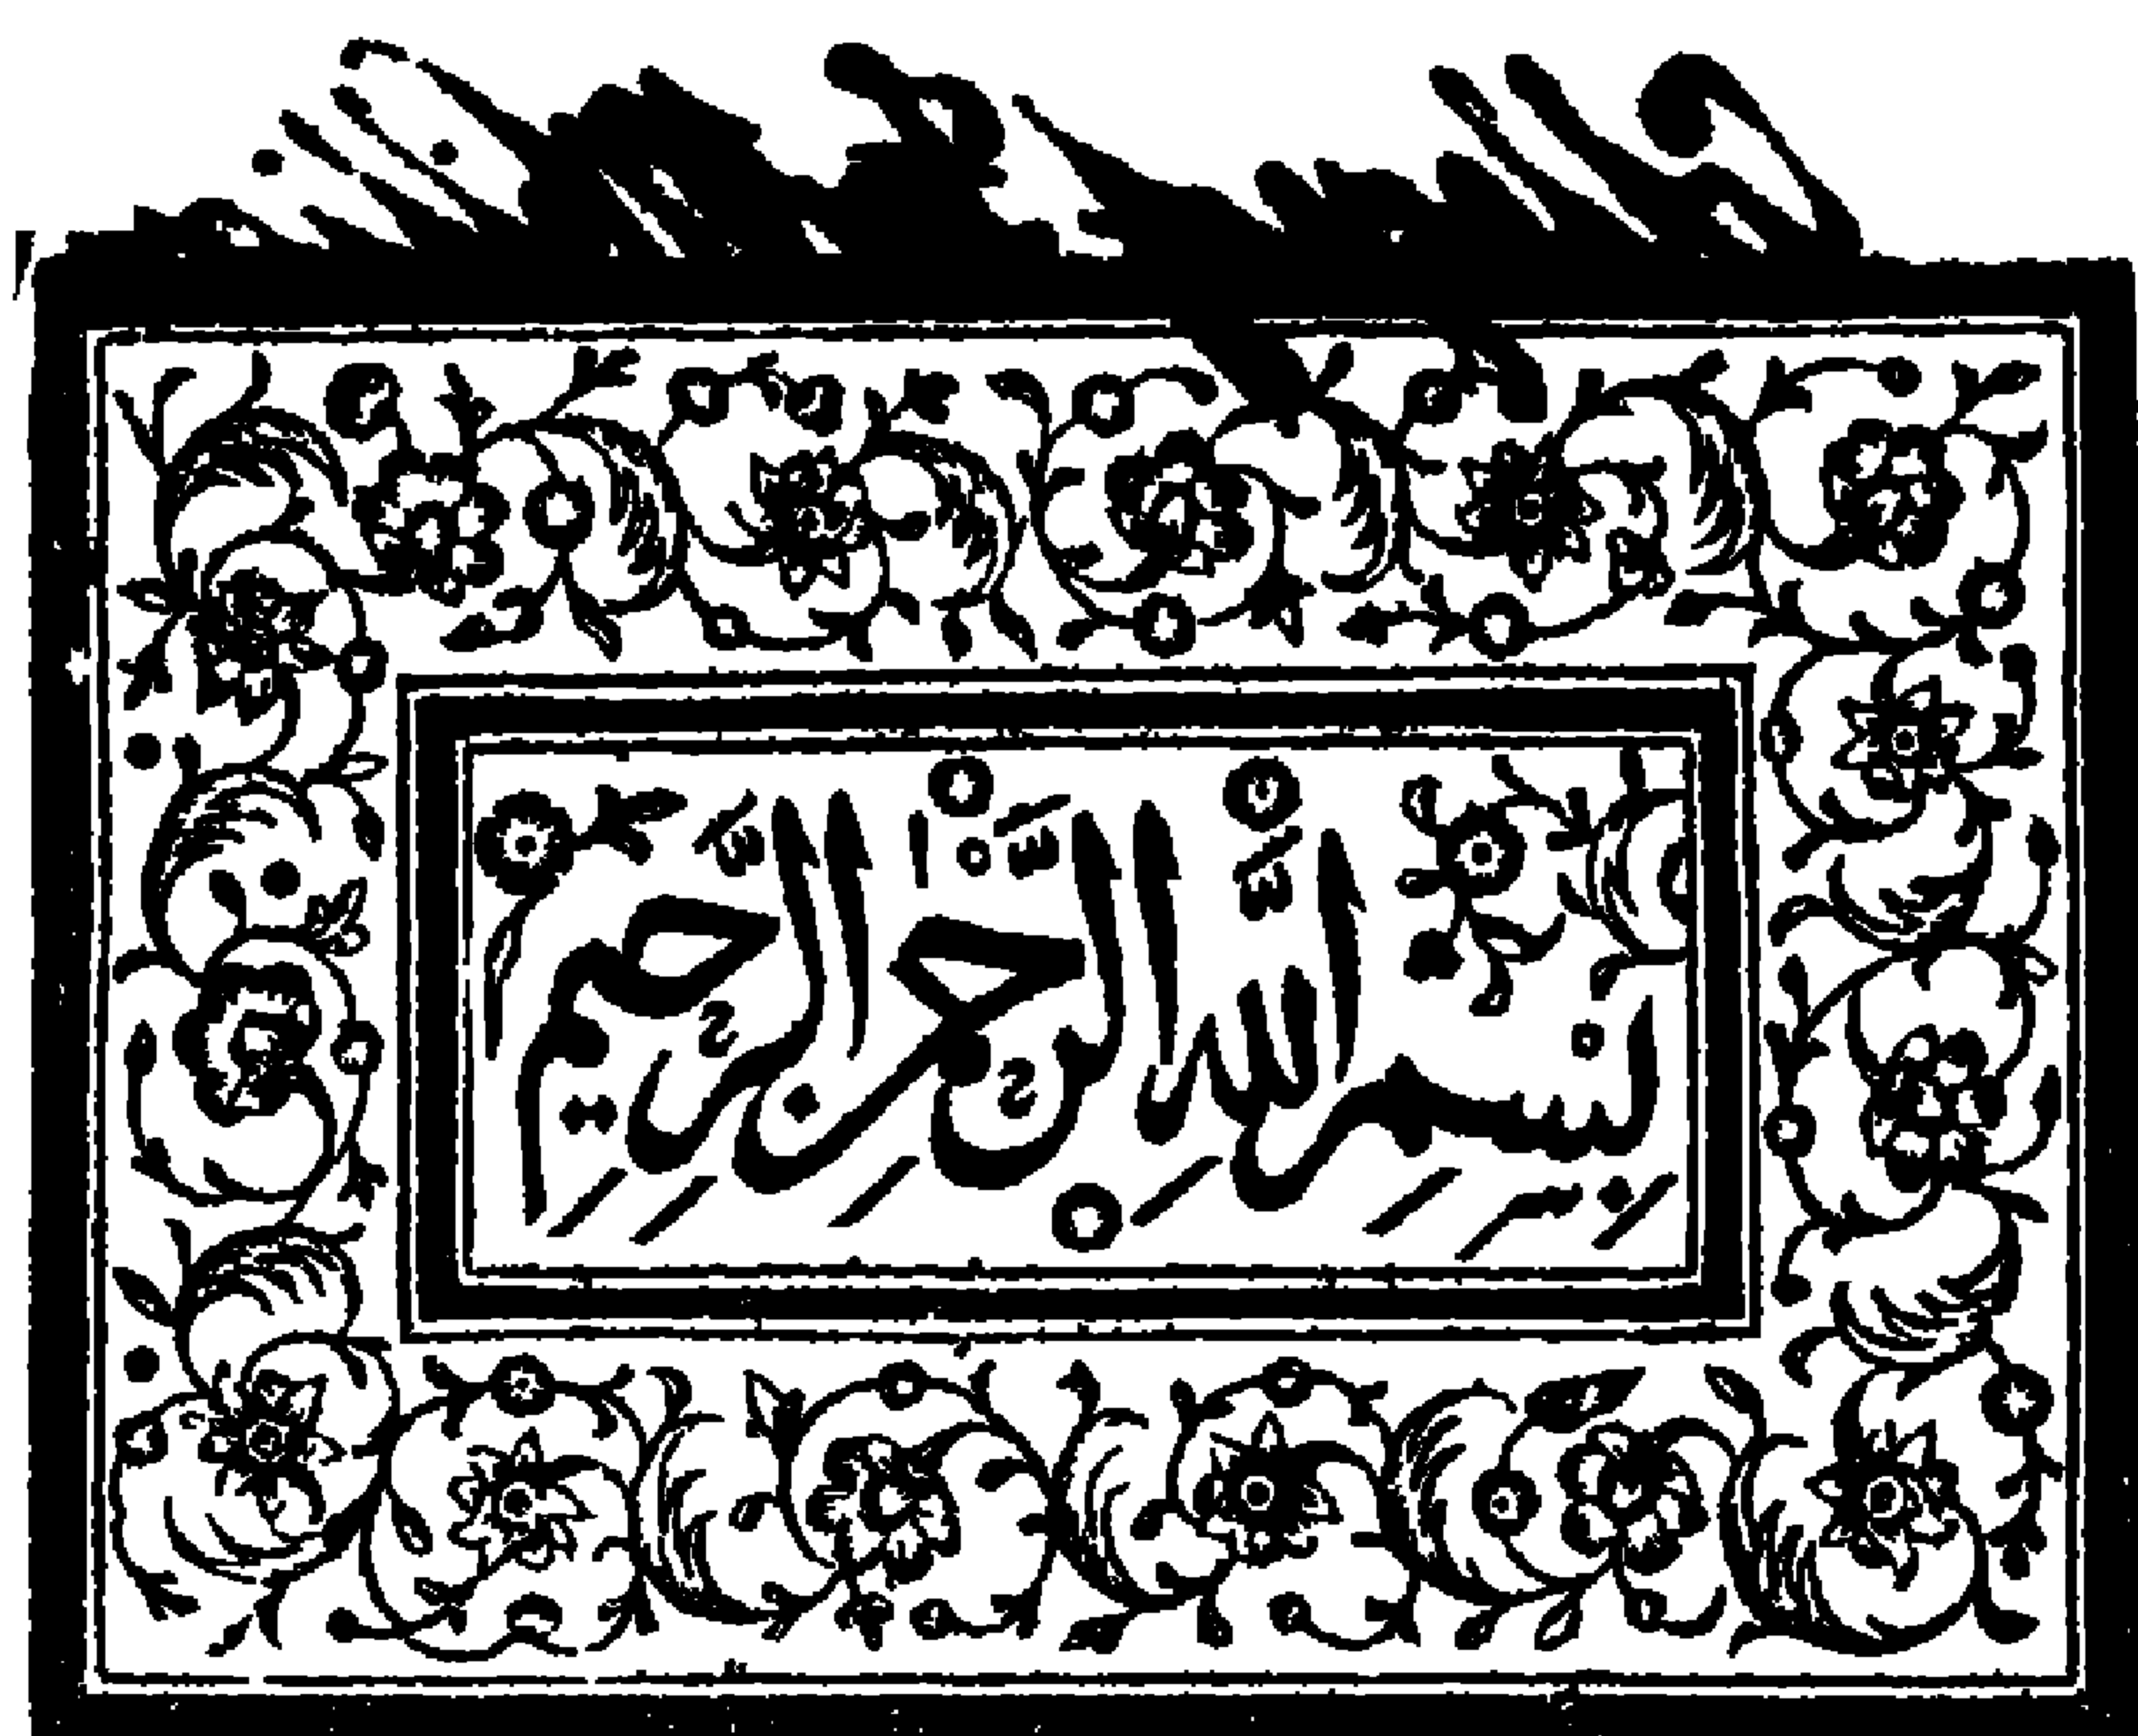 بِسْمِ اللهِ الرَّحْمٰنِ الرَّحِیْمِ